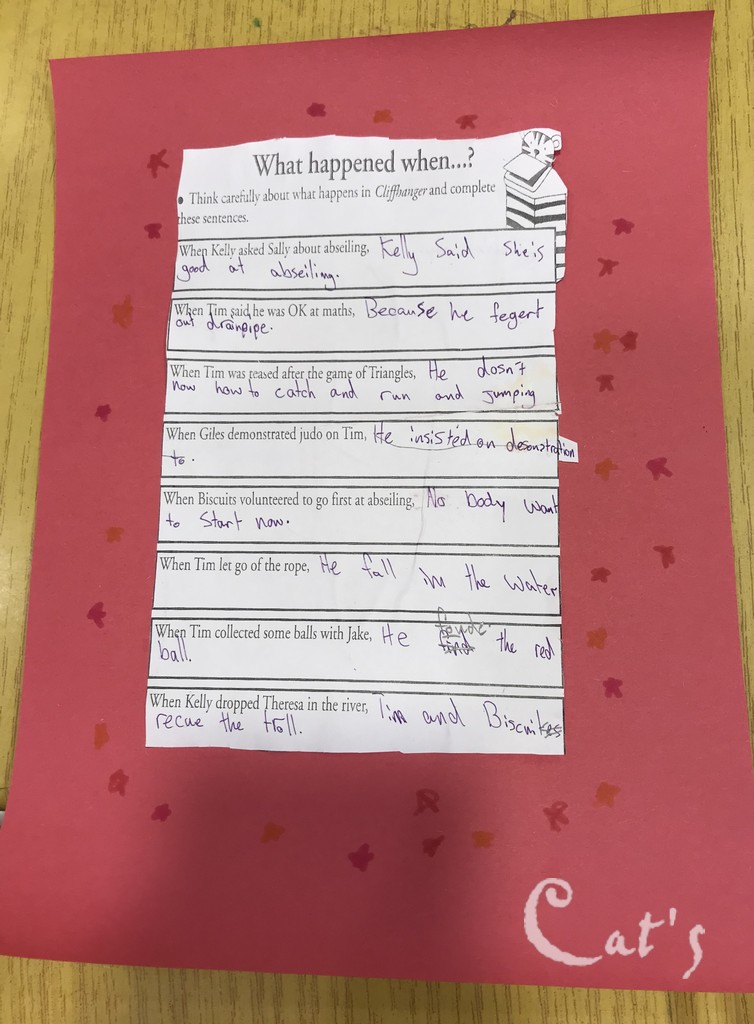 What happened when...?
• Think carefully about what happens in Cliffhanger and complete
these sentences.
When Kelly asked Sally about abseiling, Kelly Said She's
good at abseiling.
When Tim said he was OK at maths, Because he fegert
out drainpipe.
When Tim was teased after the game of Triangles, He dosn't
now how to catch and run and jumping
When Giles demonstrated judo on Tim, He insisted on desonstration
to.
When Biscuits volunteered to go first at abseiling, No body want
to Start now.
When Tim let go of the rope, He fall in the water
founde
When Tim collected some balls with Jake, He the red
ball.
When Kelly dropped Theresa in the river, Tim and Biscuit
recue the troll.
Cat's